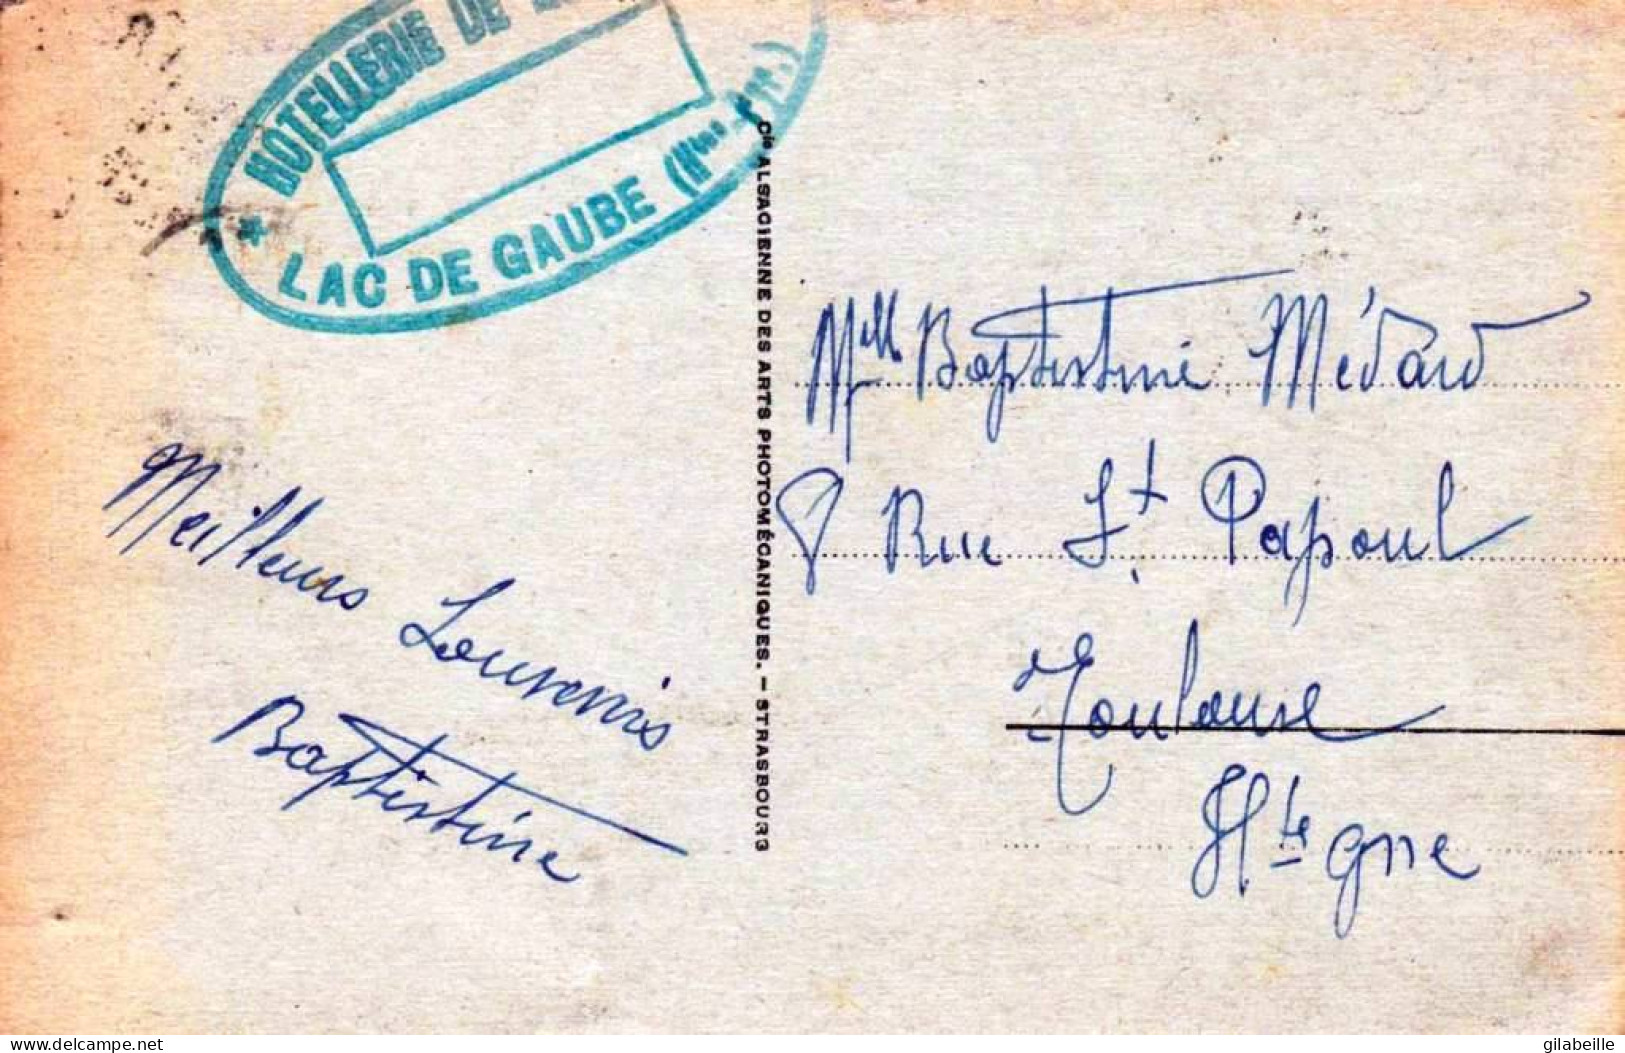 HOTELLERIE DE
* LAC DE GAUBE (Htes-Pyr.)
Meilleurs Souvenirs
Baptistine
Cie ALSACIENNE DES ARTS PHOTOMÉCANIQUES. – STRASBOURG
Melle Baptistine Médard
8 Rue St Papoul
Toulouse
Hte gne
delcampe.net
gilabeille